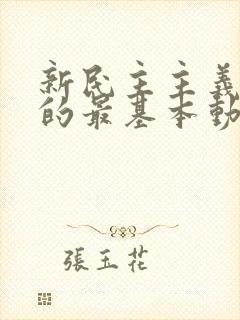 新民主主義
的最基本動
張玉花